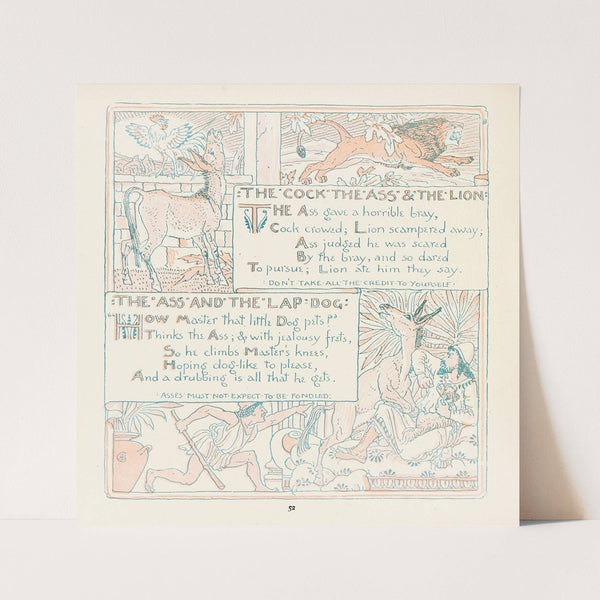 :THE·COCK·THE·ASS·&·THE·LION:
THE Ass gave a horrible bray,
Cock crowed; Lion scampered away;
Ass judged he was scared
By the bray, and so dared
To pursue; Lion ate him they say.
·DON'T·TAKE·ALL·THE·CREDIT·TO·YOURSELF·
:THE·ASS·AND·THE·LAP·DOG:
"HOW Master that little Dog pets!"
Thinks the Ass; & with jealousy frets,
So he climbs Master's knees,
Hoping dog-like to please,
And a drubbing is all that he gets.
·ASSES·MUST·NOT·EXPECT·TO·BE·FONDLED·
52